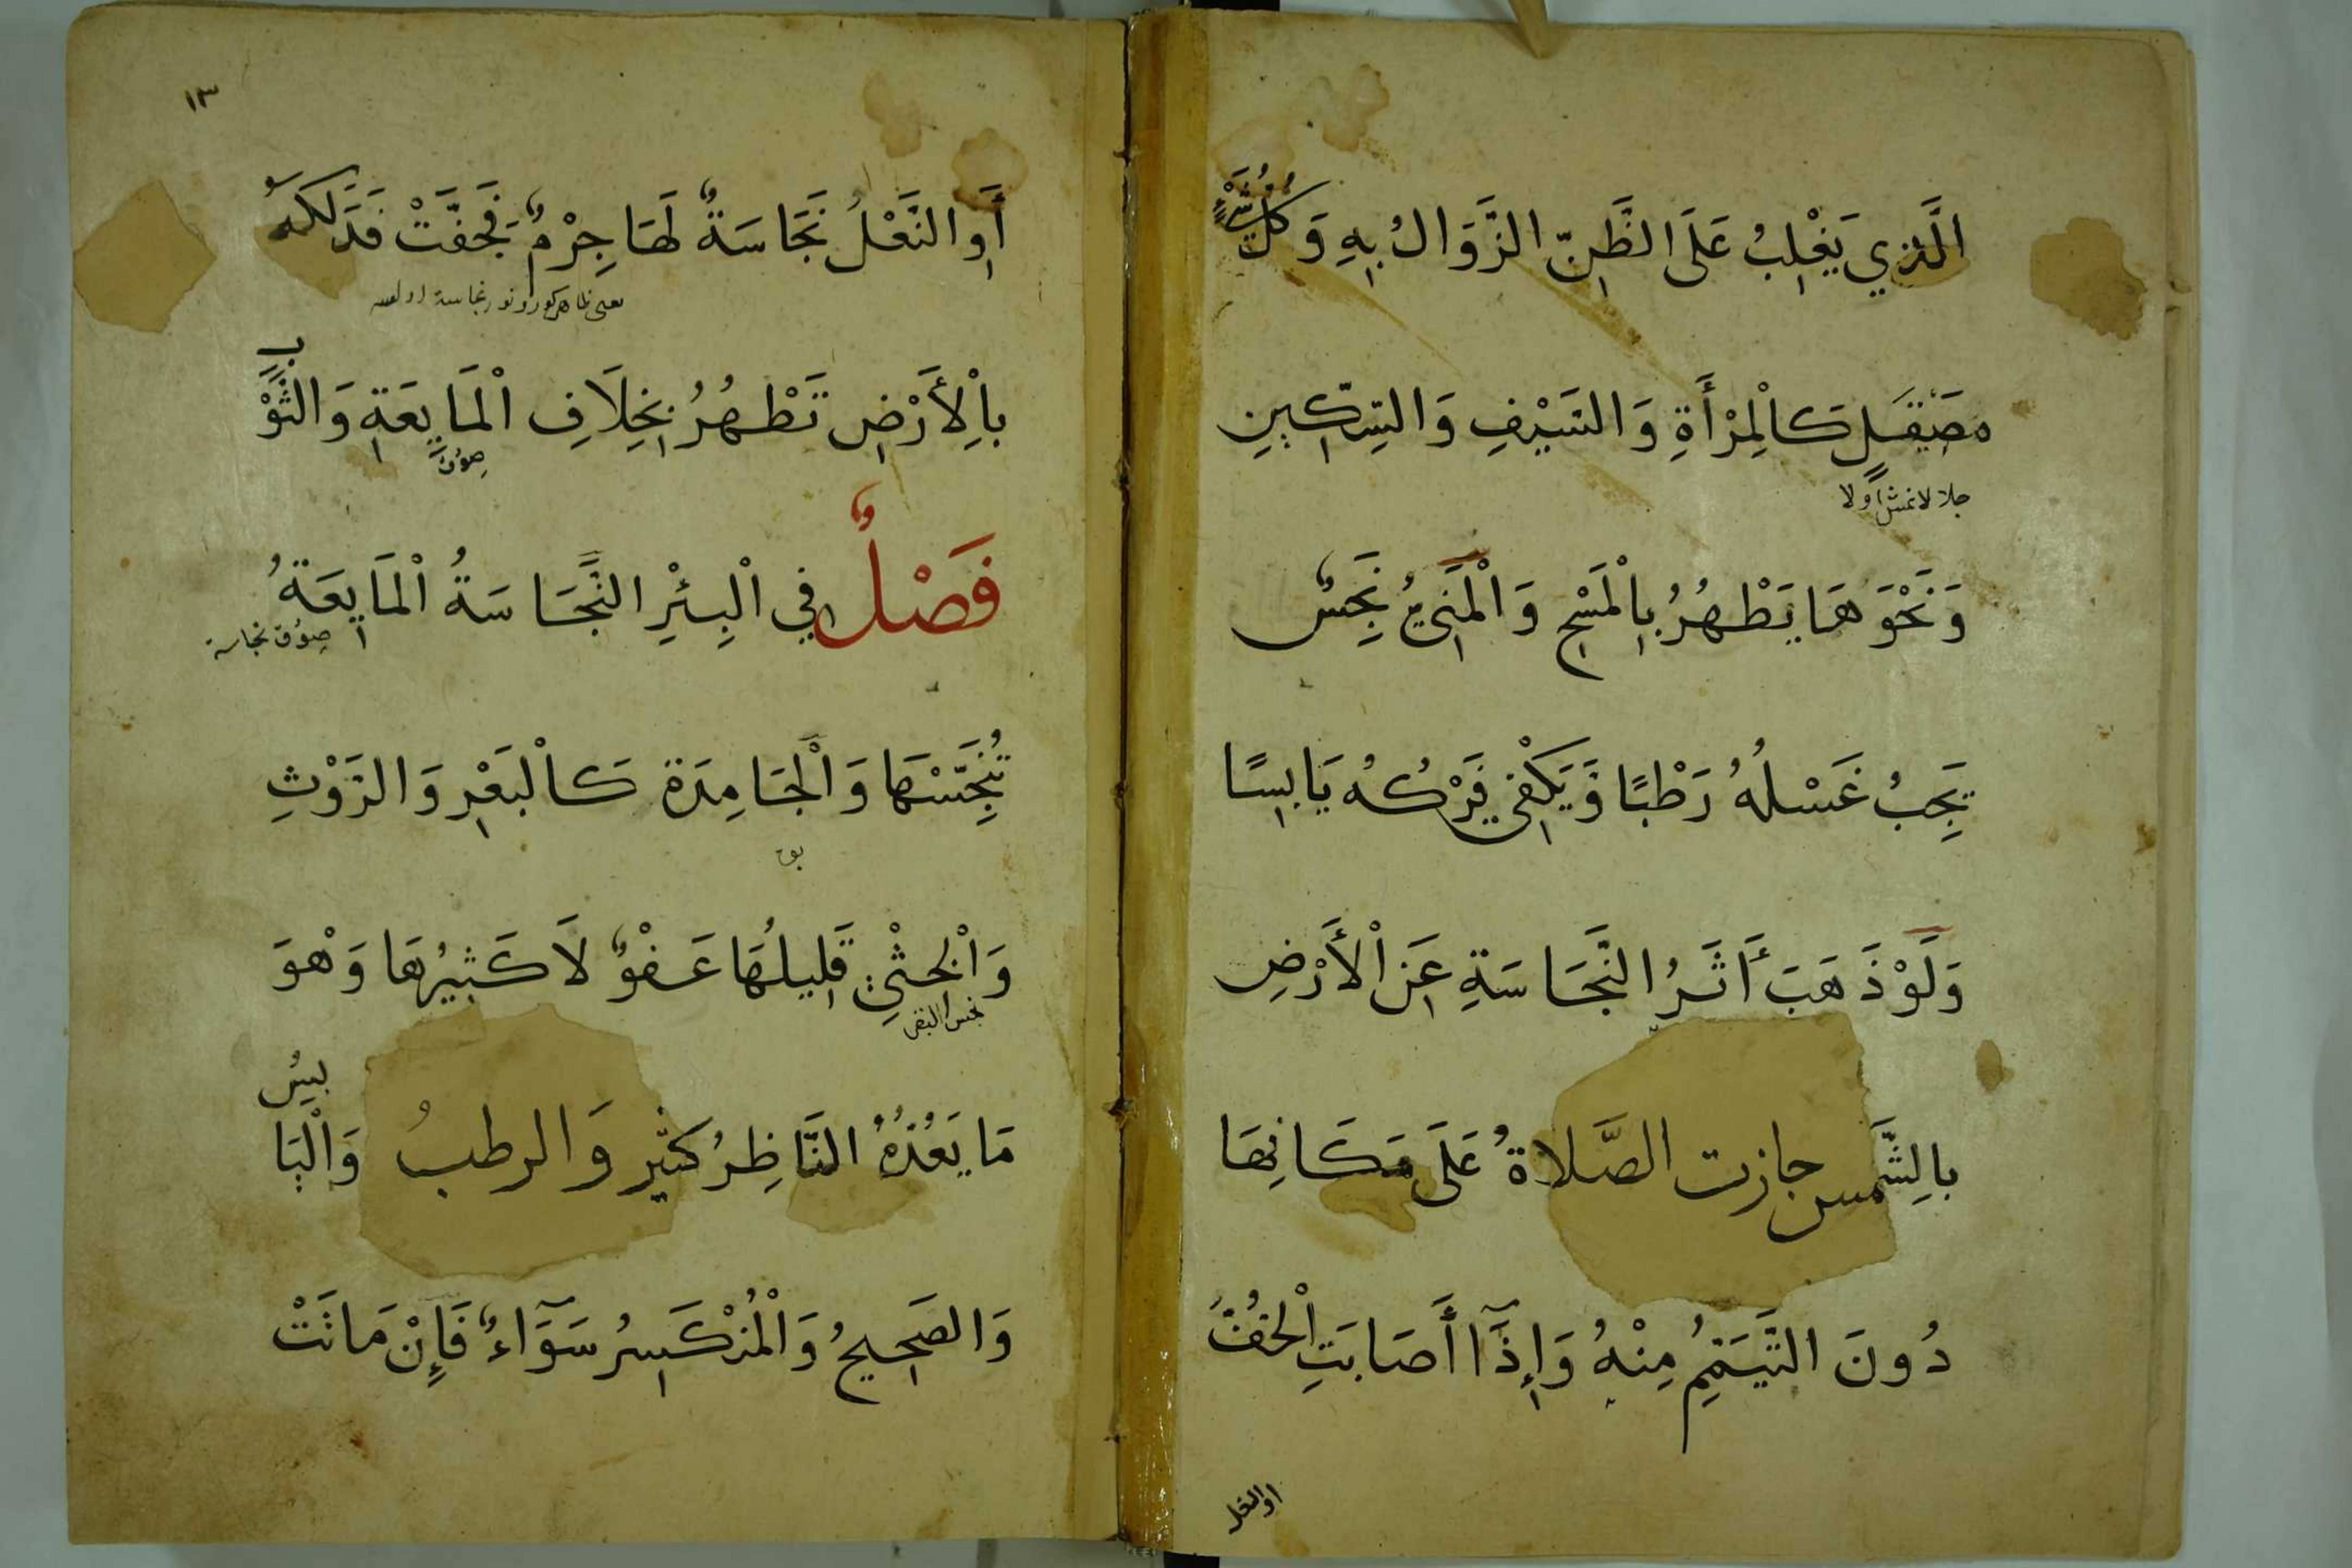 الَّذِي يَغْلِبُ عَلَى الظَّنِّ الزَّوَالُ بِهِ وَكُلُّ شَيْءٍ
مُصَيْقَلٍ كَالْمِرْأَةِ وَالسَّيْفِ وَالسِّكِّينِ
جلا لانمش اولا
وَنَحْوَهَا يَطْهُرُ بِالْمَسْحِ وَالْمَنِيُّ نَجِسٌ
يَجِبُ غَسْلُهُ رَطْبًا وَيَكْفِي فَرْكُهُ يَابِسًا
وَلَوْ ذَهَبَ أَثَرُ النَّجَاسَةِ عَنِ الْأَرْضِ
بِالشَّمْسِ جازت الصَّلاةُ عَلَى مَكَانِهَا
دُونَ التَّيَمُّمِ مِنْهُ وَإِذَآ أَصَابَتِ الْخُفَّ
او النعل
١٣
أَوِ النَّعْلَ نَجَاسَةٌ لَهَا جِرْمٌ فَجَفَّتْ فَدَلَكَهُ
بِالْأَرْضِ تَطْهُرُ بِخِلَافِ الْمَايِعَةِ وَالثَّوْبِ
صوُق
فَصْلٌ فِي الْبِئْرِ النَّجَاسَةُ الْمَايِعَةُ
صوُق نجاسة
تُنَجِّسُهَا وَالْجَامِدَةُ كَالْبَعْرِ وَالرَّوْثِ
بوق
وَالْخِثْيِ قَلِيلُهَا عَفْوٌ لَا كَثِيرُهَا وَهْوَ
نجس البقر
مَا يَعُدُّهُ النَّاظِرُ كثير وَالرطبُ وَالْيَابِسُ
وَالصَّحِيحُ وَالْمُنْكَسِرُ سَوَآءٌ فَإِنْ مَاتَتْ